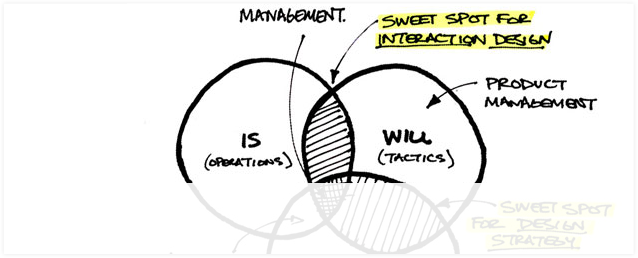 MANAGEMENT.
SWEET SPOT FOR
INTERACTION DESIGN
PRODUCT
MANAGEMENT
IS
(OPERATIONS)
WILL
(TACTICS)
SWEET SPOT
FOR DESIGN
STRATEGY.